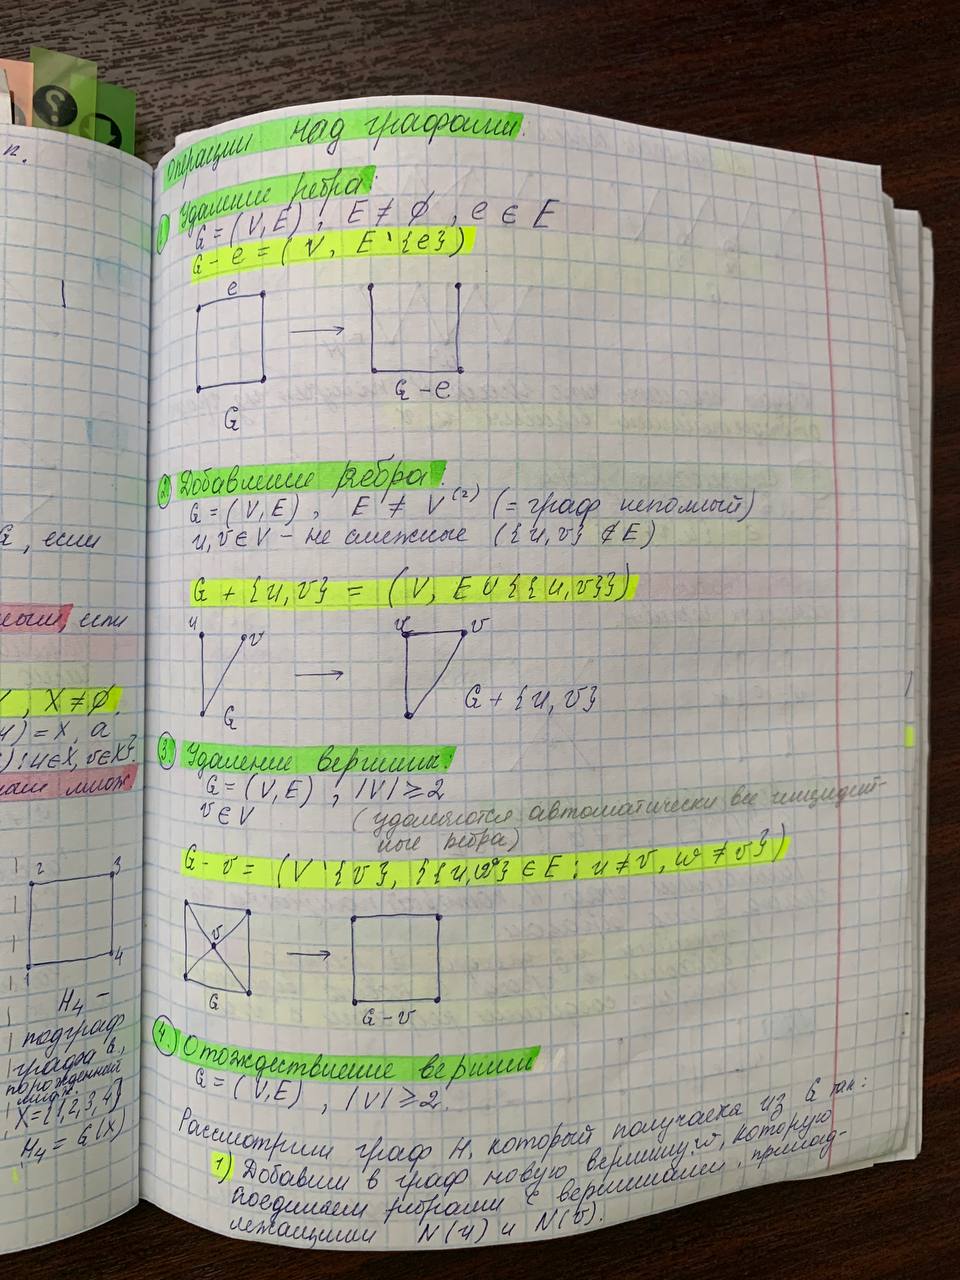 п.
G, если
ным, если
, X ≠ ∅.
) = X, а
): u ∈ X, v ∈ X}.
множ
2
3
1
4
H₄ –
подграф
графа G,
порожденный
множ.
X = {1,2,3,4}
H₄ = G(X)
Операции над графами.
1 Удаление ребра:
G = (V, E) ; E ≠ ∅ , e ∈ E
G – e = (V, E \ {e})
e
G
G – e
2. Добавление ребра.
G = (V, E) , E ≠ V⁽²⁾ (= граф неполный)
u, v ∈ V – не смежные ({u, v} ∉ E)
G + {u, v} = (V, E ∪ {{u, v}})
u v
u v
G
G + {u, v}
3. Удаление вершины.
G = (V, E) ; |V| ≥ 2
v ∈ V (удаляются автоматически все инцидент-
ные ребра)
G – v = (V \ {v}, {{u, w} ∈ E : u ≠ v, w ≠ v})
v
G
G – v
4. Отождествление вершин
G = (V, E) , |V| ≥ 2.
Рассмотрим граф H, который получается из G так:
1) Добавим в граф новую вершину w, которую
соединяем ребрами с вершинами, принад-
лежащими N(u) и N(v).